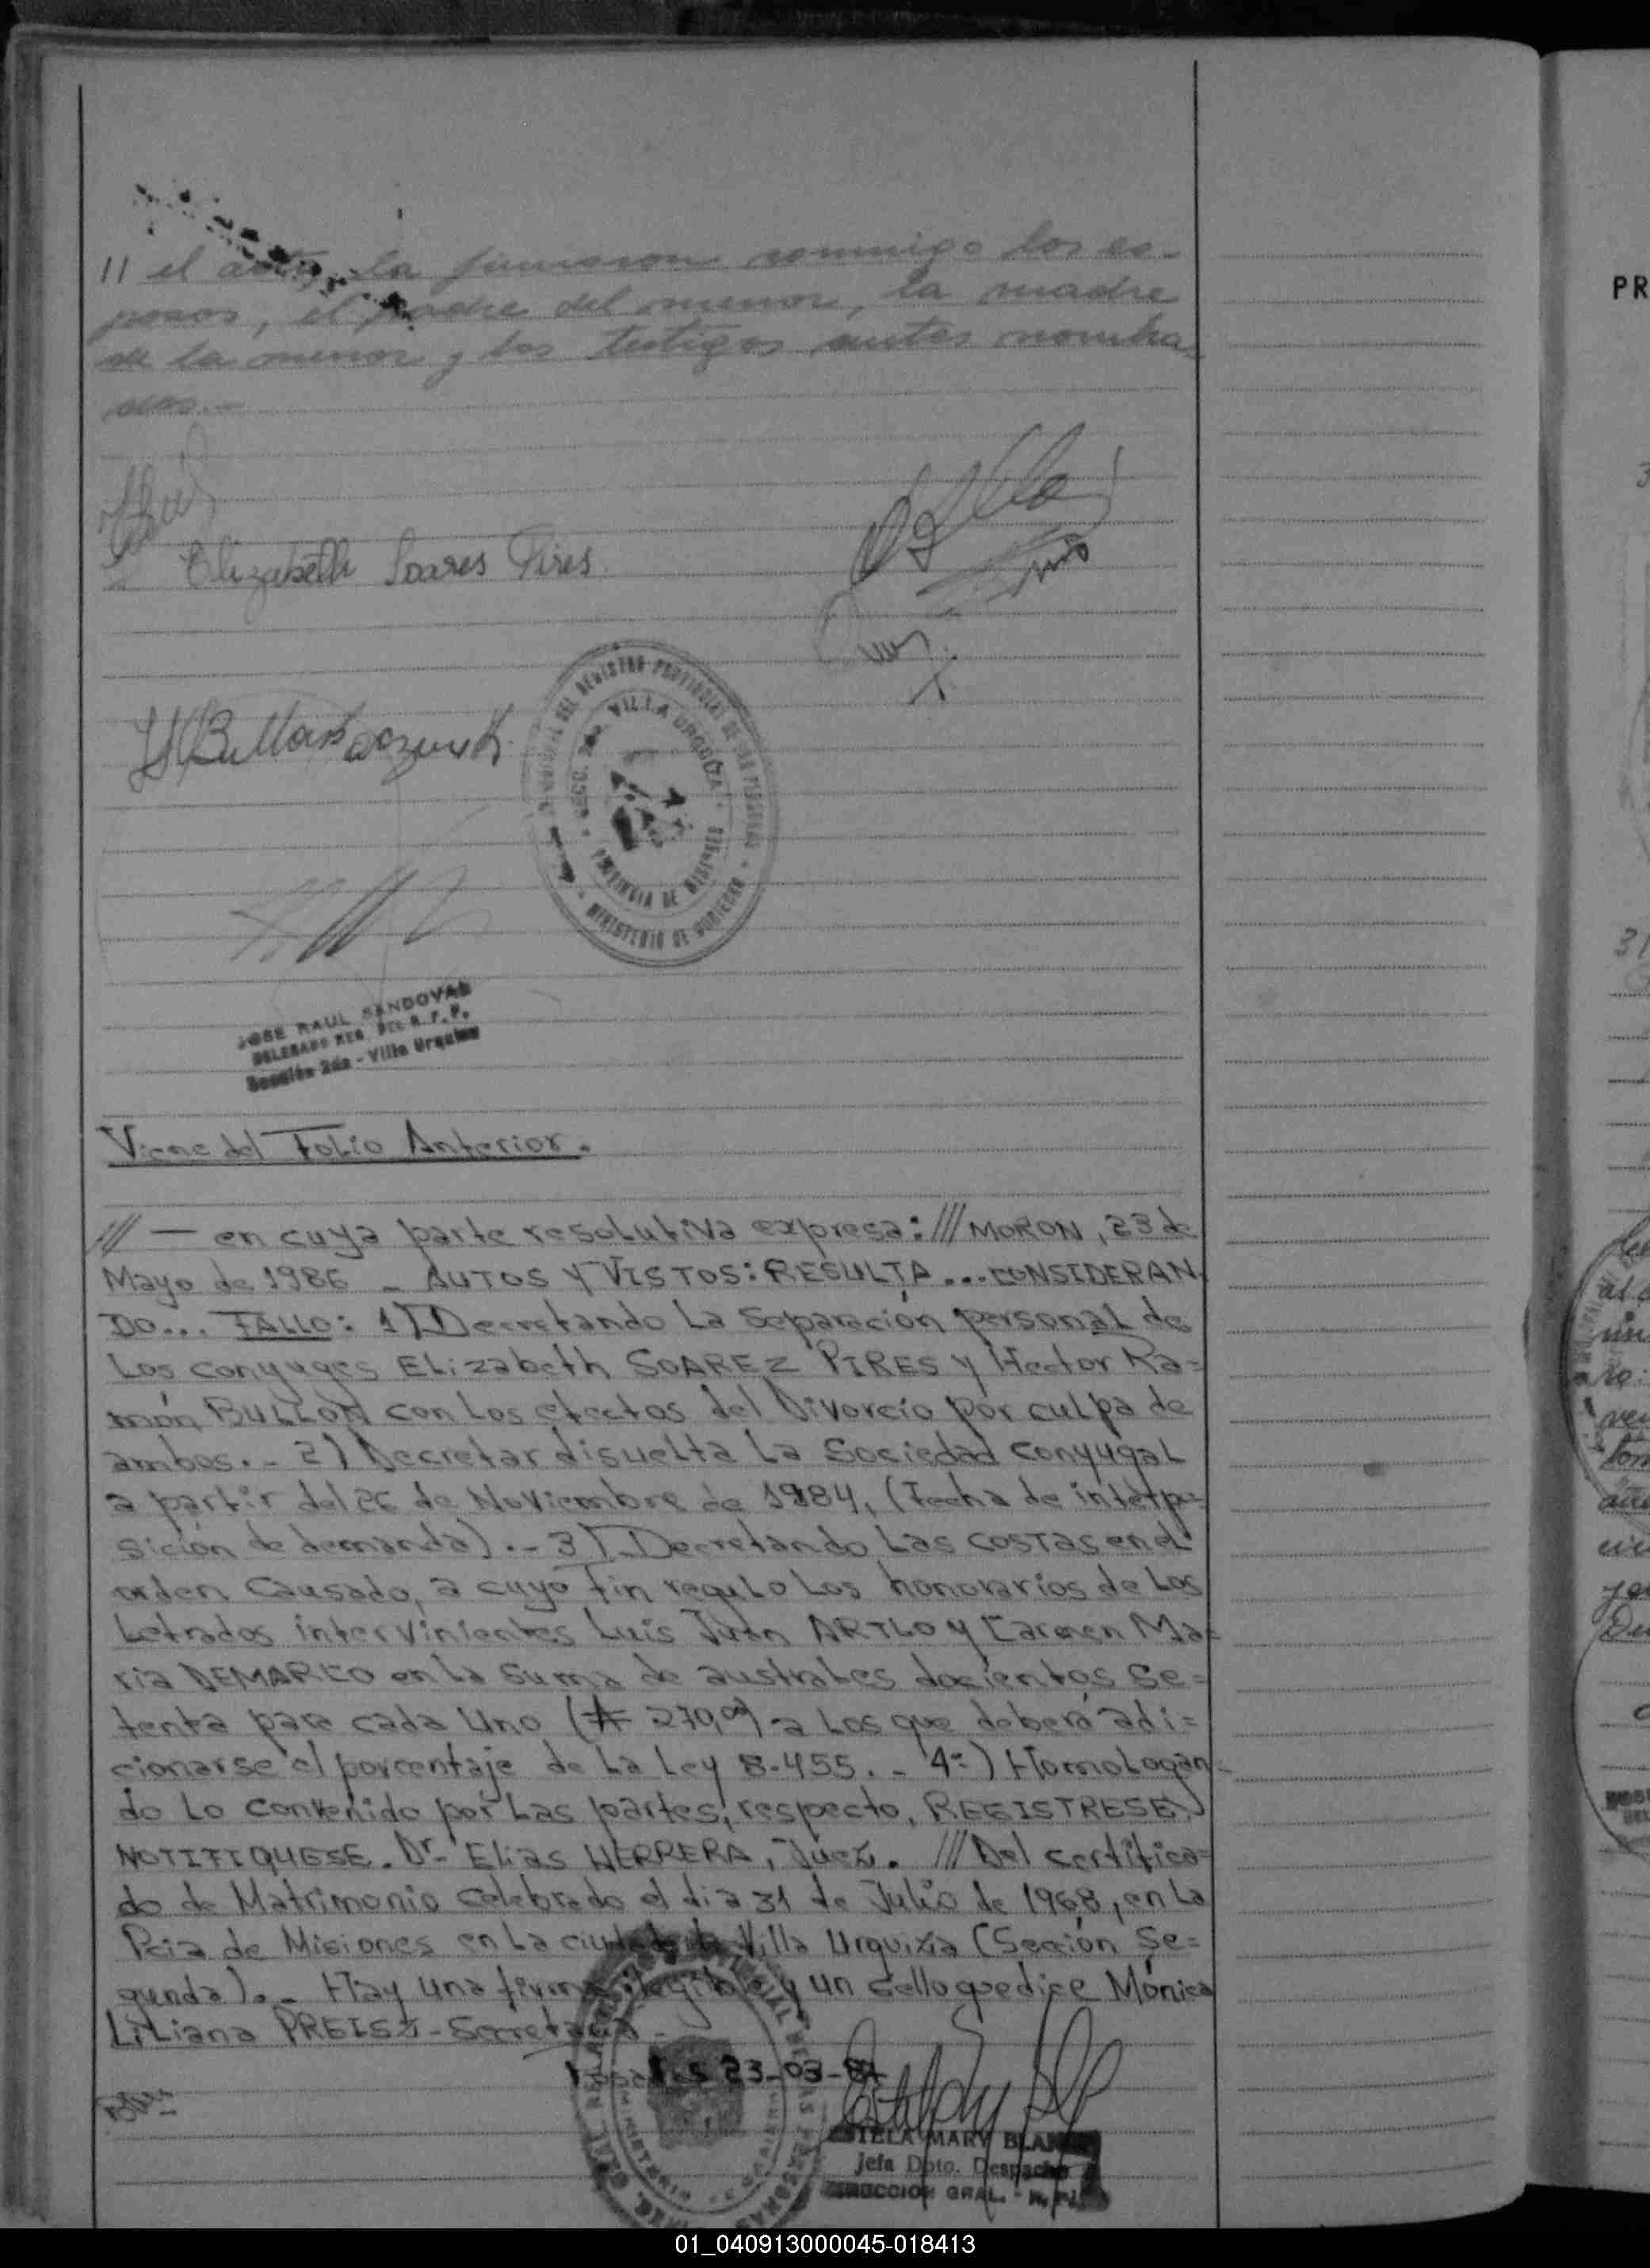 // el acta, la firmaron conmigo los es-
posos, el padre del menor, la madre
de la menor y los testigos antes nombra-
dos.-
Elizabeth Soares Pires
REGISTRO PROVINCIAL DE LAS PERSONAS
SECC. 2da. VILLA URQUIZA
PROVINCIA DE MISIONES
MINISTERIO DE GOBIERNO
JOSE RAUL SANDOVAL
DELEGADO REG. DEL R.P.P.
Sección 2da - Villa Urquiza
Viene del Folio Anterior.
/// — en cuya parte resolutiva expresa: /// MORON, 23 de
Mayo de 1986 - AUTOS Y VISTOS: RESULTA ... CONSIDERAN
DO... FALLO: 1) Decretando La Separación personal de
Los conyuges ELizabeth SOAREZ PIRES y Hector Ra=
món BULLON con Los efectos del Divorcio por culpa de
ambos.- 2) Decretar disuelta La Sociedad conyugaL
a partir del 26 de Noviembre de 1984, (Fecha de interpo=
sición de demanda).- 3) Decretando Las COSTAS en eL
orden Causado, a cuyo fin reguLo Los honorarios de Los
Letrados intervinientes Luis Juan ARTLO y Carmen Ma=
ria DEMARCO en La Suma de australes docientos Se=
tenta para cada Uno (₳ 270,00) a Los que deberá adi=
cionarse el porcentaje de La Ley 8.455.- 4=) HomoLogan=
do Lo convenido por Las partes, respecto, REGISTRESE,
NOTIFIQUESE. Dr Elias HERRERA, Juez. /// Del certifica=
do de Matrimonio celebrado el dia 31 de Julio de 1968, en La
Pcia de Misiones en La ciudad de Villa Urquiza (Sección Se=
gunda).- Hay una firma ilegible y un sello que dice Mónica
LiLiana PREISZ - Secretaria -
23-03-87
ESTELA MARY BLAN
Jefa Dpto. Despacho
DIRECCION GRAL. - R. P.
PR
01_040913000045-018413